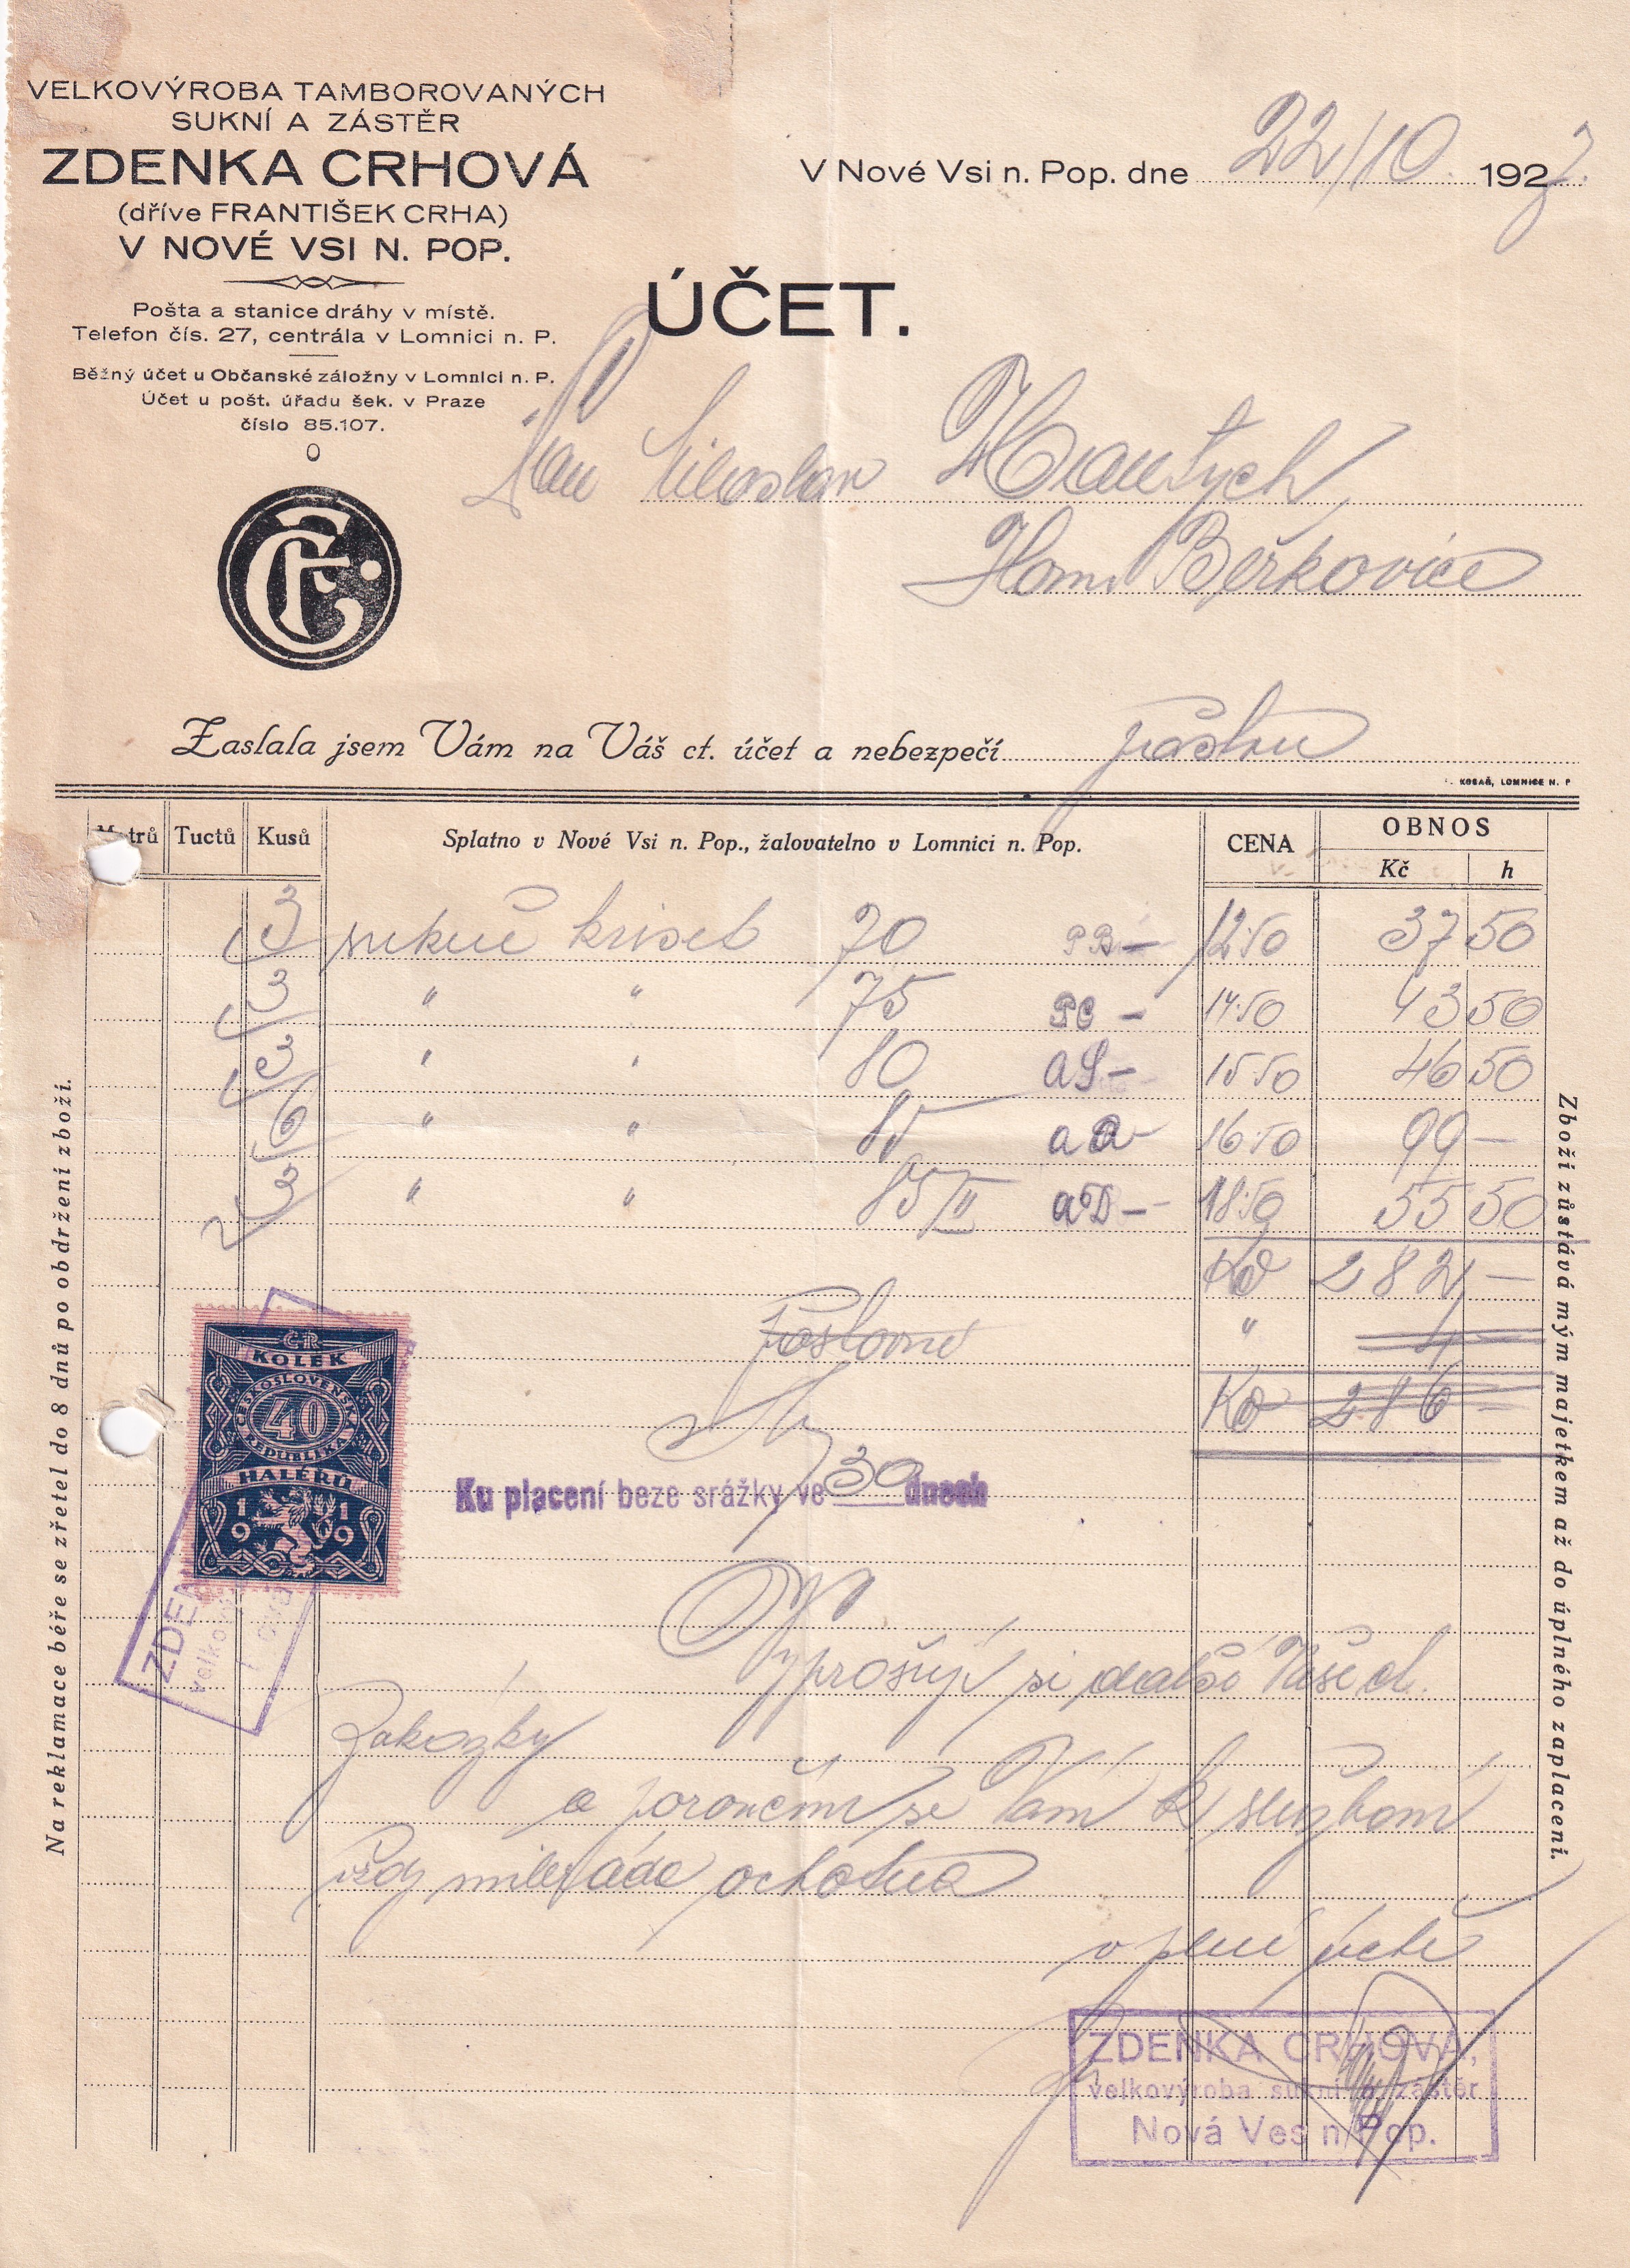 VELKOVÝROBA TAMBOROVANÝCH
SUKNÍ A ZÁSTĚR
ZDENKA CRHOVÁ
(dříve FRANTIŠEK CRHA)
V NOVÉ VSI N. POP.
Pošta a stanice dráhy v místě.
Telefon čís. 27, centrála v Lomnici n. P.
Běžný účet u Občanské záložny v Lomnici n. P.
Účet u pošt. úřadu šek. v Praze
číslo 85.107.
V Nové Vsi n. Pop. dne 22/10. 1927.
ÚČET.
Pan Miloslav
Horní Beřkovice
Zaslala jsem Vám na Váš ct. účet a nebezpečí poštou
KOSAŘ, LOMNICE N. P
Metrů Tuctů Kusů Splatno v Nové Vsi n. Pop., žalovatelno v Lomnici n. Pop. CENA OBNOS
Kč h
3 sukně 70 PB- 12·50 37 50
3 " " 75 PC - 14·50 43 50
3 " " 80 aS- 15·50 46 50
6 " " 85 aa- 16·50 99 -
3 " " 85/II aD- 18·50 55 50
Kč 282 -
Poštovné " 4 -
Kč 286 -
ČR
KOLEK
ČESKOSLOVENSKÁ
40
REPUBLIKA
HALÉŘŮ
1919
Ku placení beze srážky ve 30 dnech
ZDEN
velkový
Vyprošuji si další Vaše ct.
Zakázky
a poroučím se Vám k službám
vždy milerádа ochotna
v plné úctě
ZDENKA CRHOVÁ,
velkovýroba sukní a zástěr
Nová Ves n. Pop.
Na reklamace béře se zřetel do 8 dnů po obdržení zboží.
Zboží zůstává mým majetkem až do úplného zaplacení.